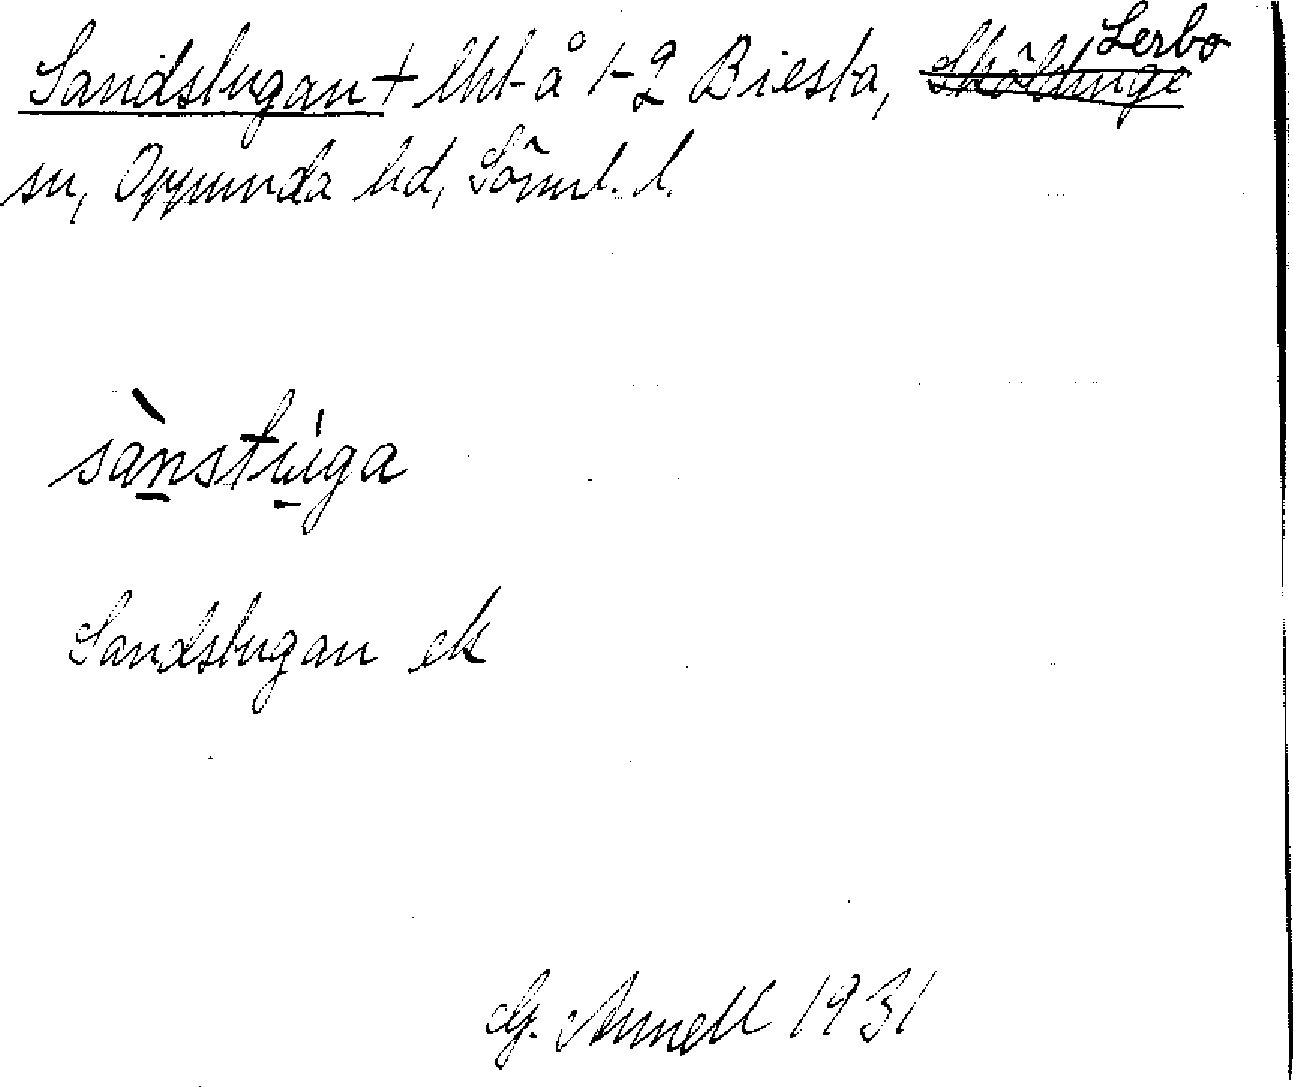 Sandstugan + lht å 1-2 Biesta, Sköldinge Lerbo
sn, Oppunda hd, Söml. l.
sànstú̱ga
Sandstugan ek
G. Annell 1931